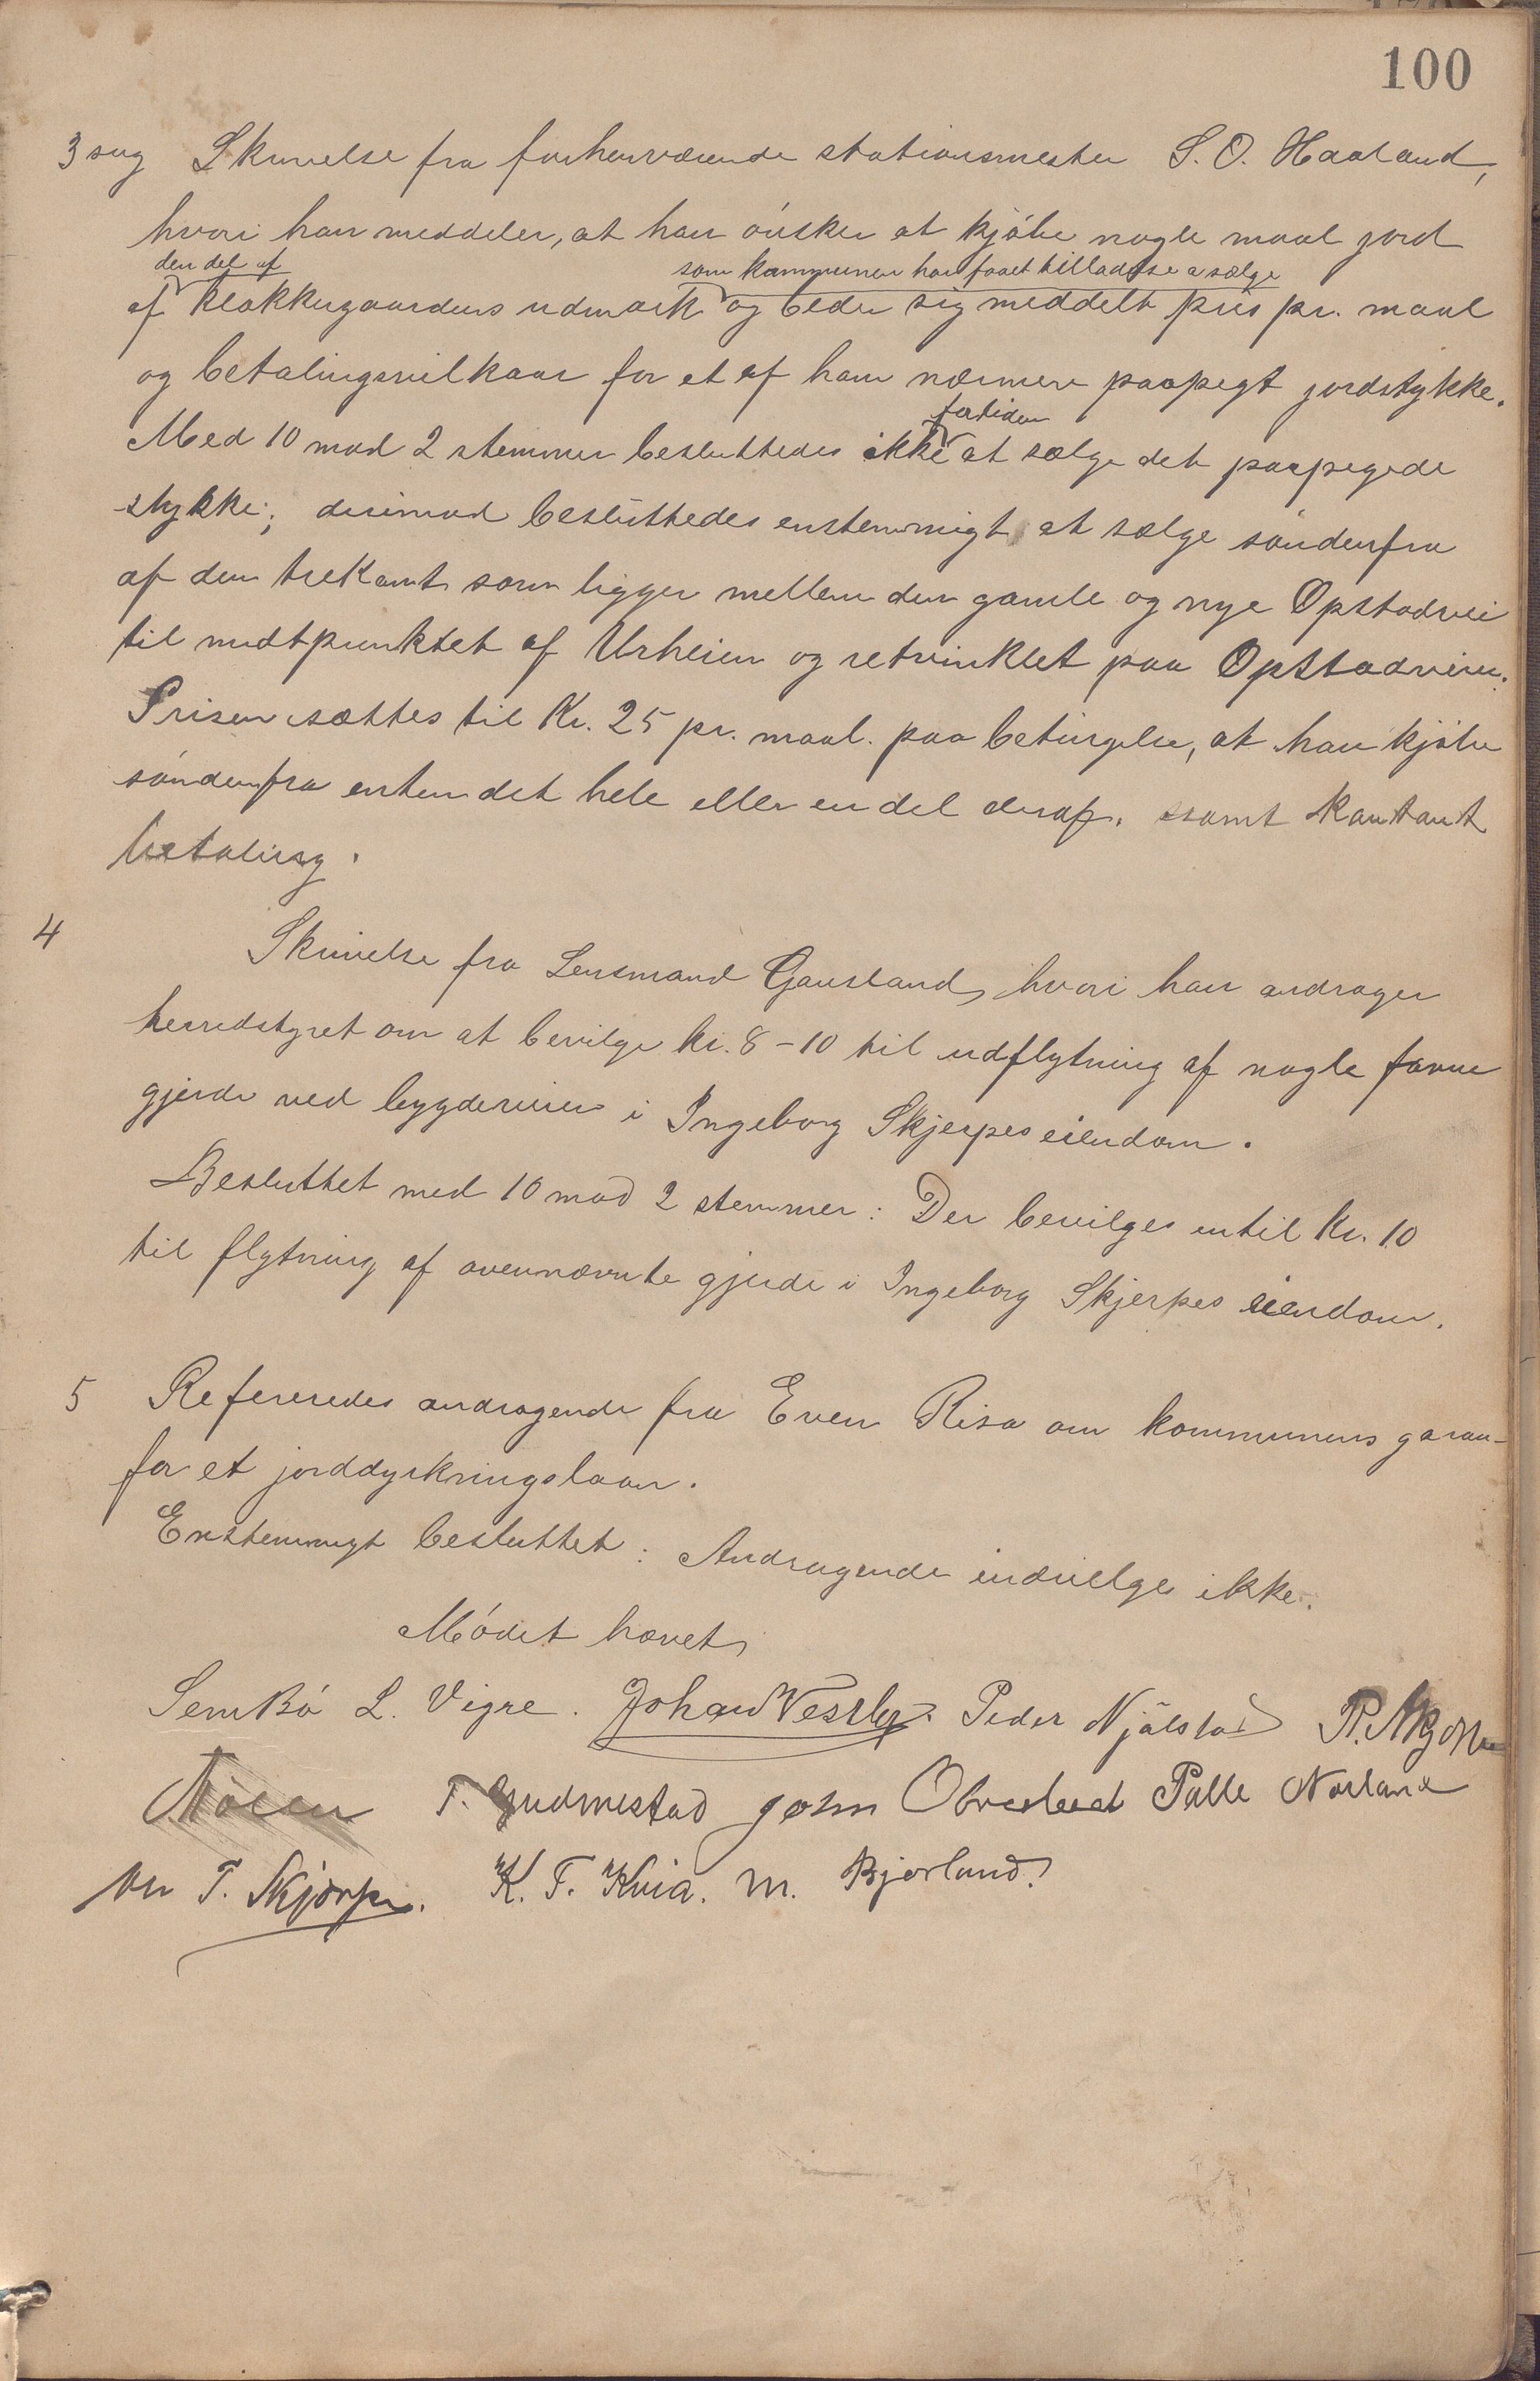 100
3 sag Skrivelse fra forhenværende stationsmester S. O. Haaland,
hvori han meddeler, at han ónsker at kjóbe nogle maal jord
den del af som kommunen har faaet tilladelse a sælge
af klokkergaardens udmark og beder sig meddelt pris pr. maal
og betalingsvilkaar for et af ham nærmere paapegt jordstykke.
fortiden
Med 10 mod 2 stemmer besluttedes ikke at sælge det paapegede
stykke; derimod besluttedes enstemmigt at sælge sóndenfra
af den trekant som ligger mellem den gamle og nye Opstadvei
til midtpunktet af Urheien og retvinklet paa Opstadveien.
Prisen sættes til Kr. 25 pr. maal. paa betingelse, at han kjóber
sóndenfra enten det hele eller en del deraf. samt kontant
betaling.
4
Skrivelse fra Lensmand Gausland, hvori han andrager
herredstyret om at bevilge kr. 8-10 til udflytning af nogle favne
gjerde ved bygdeveien i Ingeborg Skjerpes eiendom.
Besluttet med 10 mod 2 stemmer: Der bevilges intil Kr. 10
til flytning af ovennævnte gjerde i Ingeborg Skjerpes eiendom.
5 Refereredes andragende fra Even Risa om kommunens garan-
for et jorddyrkningslaan.
Enstemmigt besluttet: Andragende indvilges ikke.
Módet hævet,
Sem Bó L. Vigre. Johan Vessby. Peder Njålstad
T. Gudmestad John Obrestad Palle Norland
T. Skjorpe. K. T. Kvia. M. Bjorland.